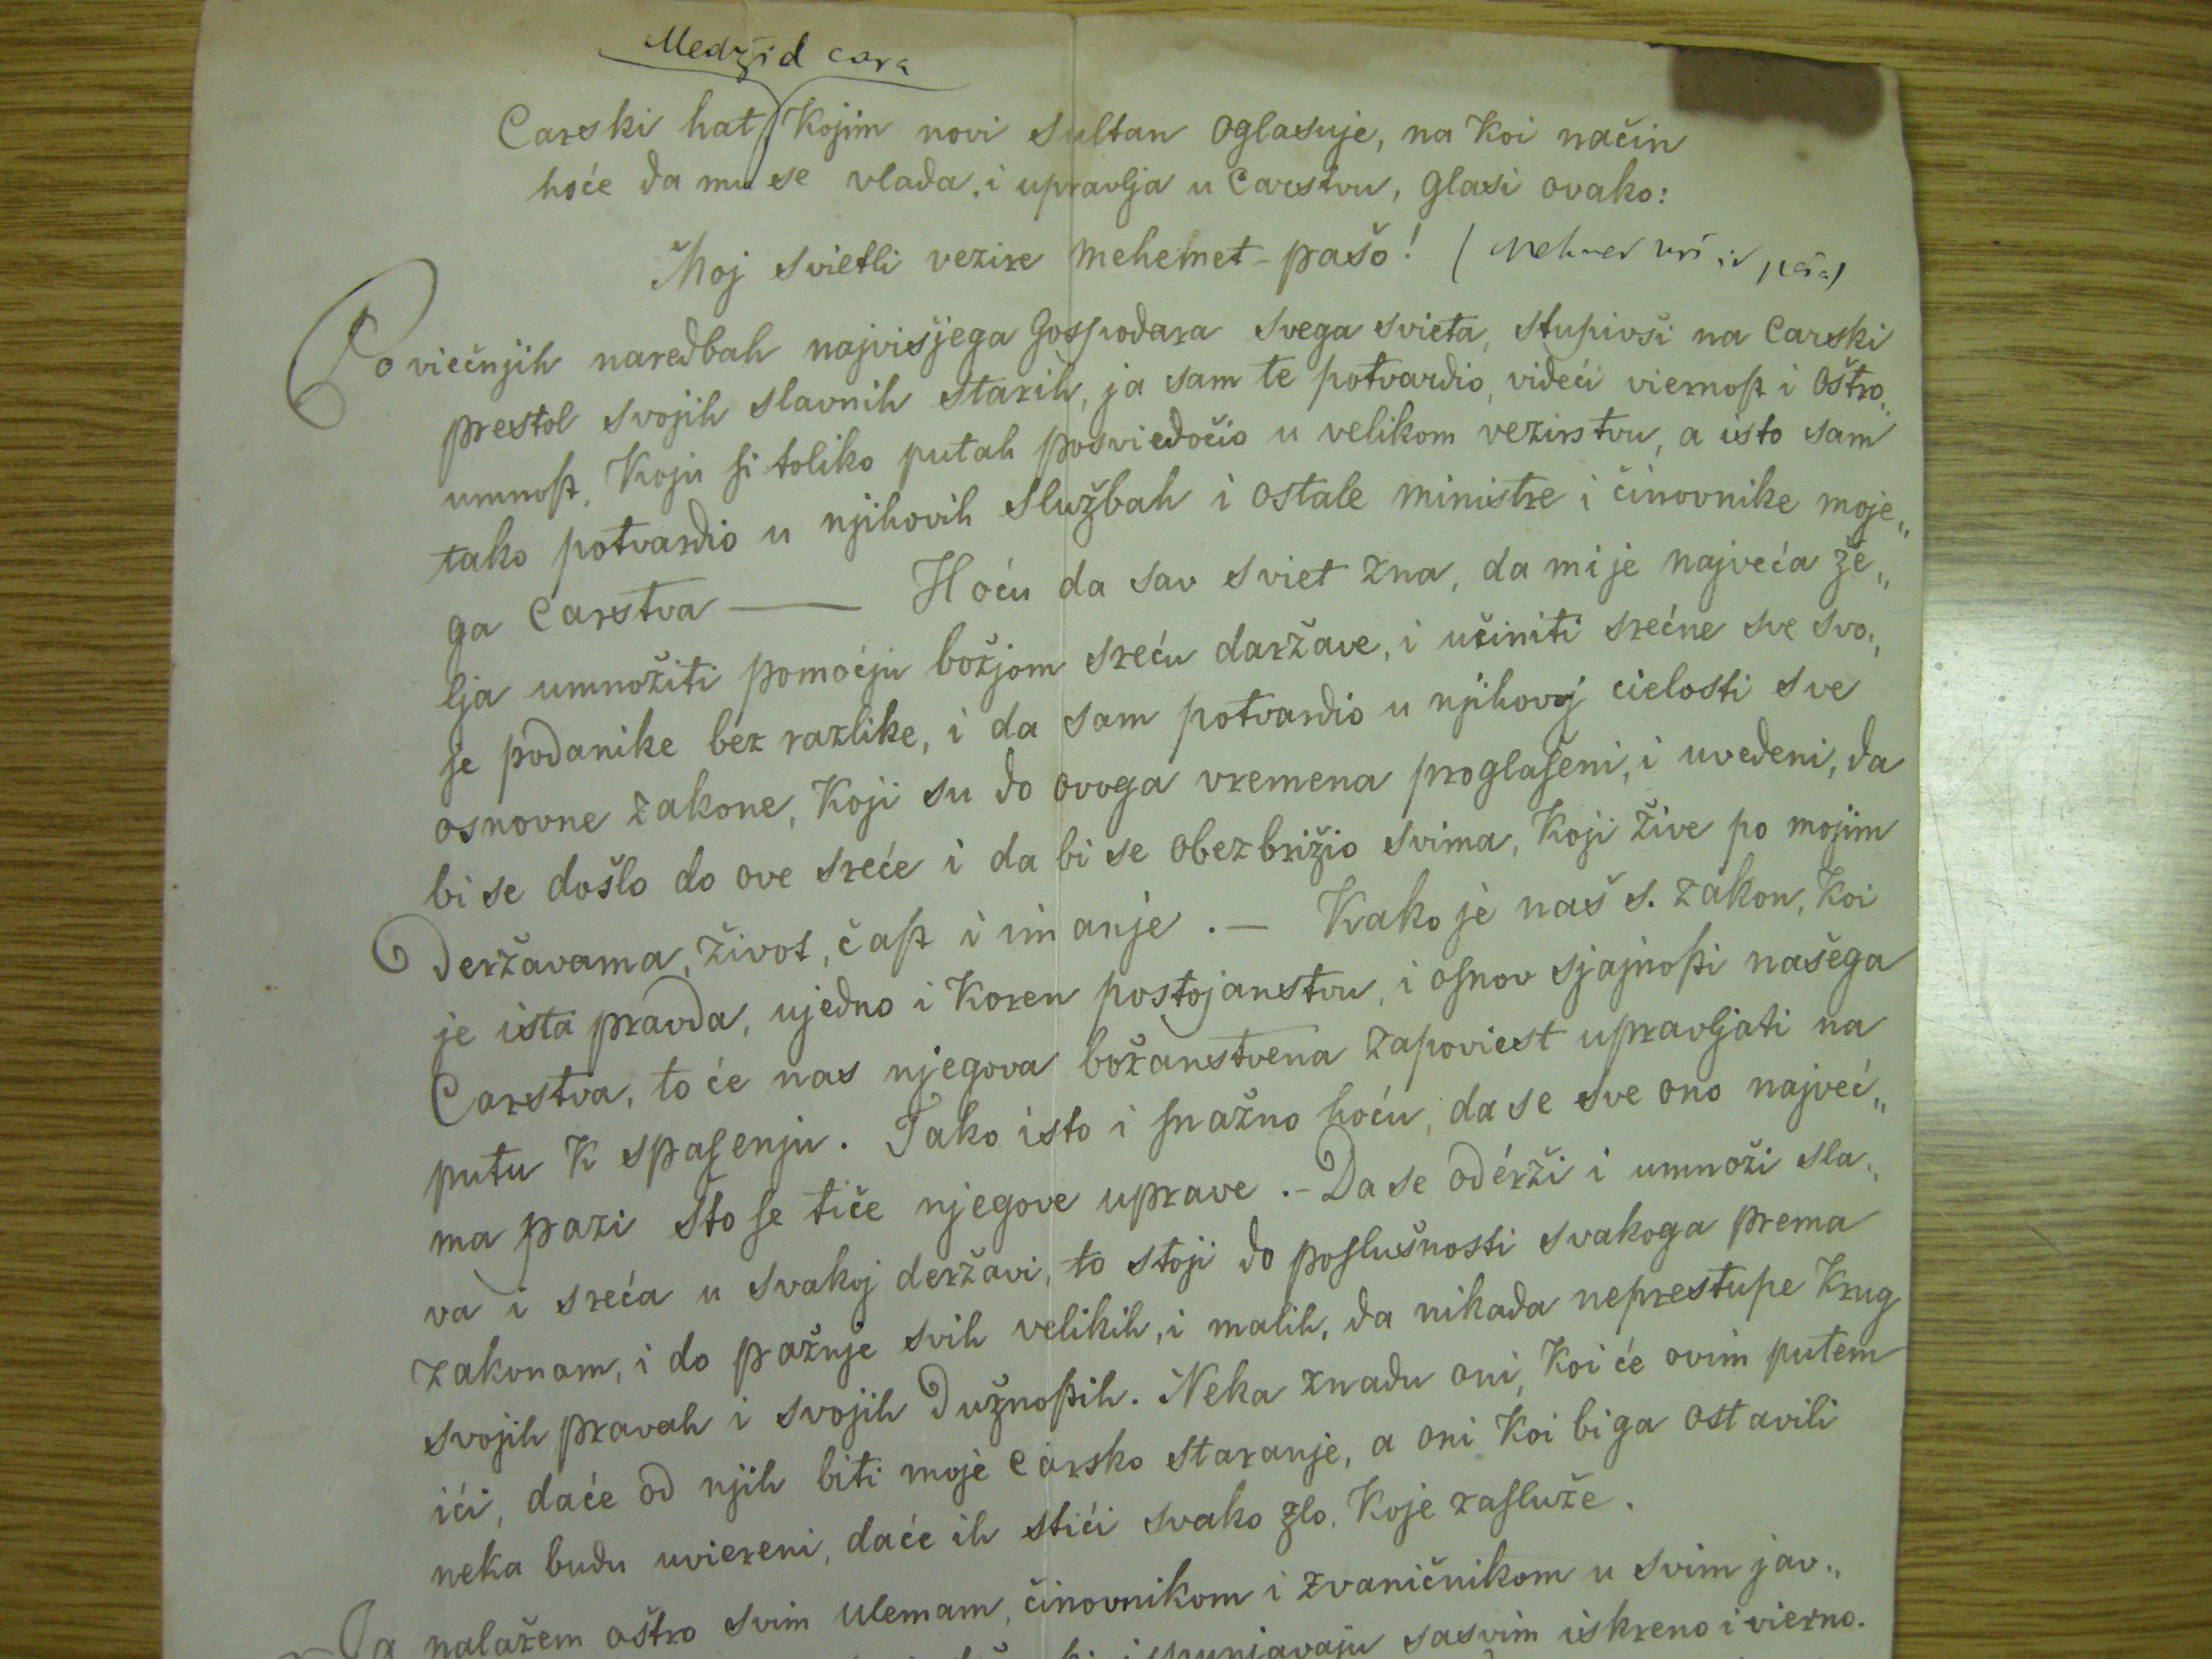 Medžid cara
Carski hat, Kojim novi sultan oglasuje, na Koi način
hoće da mu se vlada, i upravlja u Carstvu, glasi ovako:
Moj svietli vezire Mehemet-pašo! (Mehmed paša)
Po viečnjih naredbah najvišjega Gospodara svega svieta, stupivši na Carski
prestol svojih slavnih starih, ja sam te potvardio, videći viernost i oštro„
umnost, Koju si toliko putah posviedočio u velikom vezirstvu, a isto sam
tako potvardio u njihovih službah i ostale ministre i činovnike moje„
ga Carstva —— Hoću da sav sviet zna, da mi je najveća že„
lja umnožiti pomoćju božjom sreću daržave, i učiniti srećne sve svo„
je podanike bez razlike, i da sam potvardio u njihovoj cielosti sve
osnovne zakone, Koji su do ovoga vremena proglašeni, i uvedeni, da
bi se došlo do ove sreće i da bi se obezbrižio svima, Koji žive po mojim
deržavama, život, čast i imanje .— Kako je naš s. zakon, Koi
je ista pravda, ujedno i Koren postojanstvu, i osnov sjajnosti našega
Carstva, to će nas njegova božanstvena zapoviest upravljati na
putu K spasenju. Tako isto i snažno hoću, da se sve ono najveć„
ma pazi što se tiče njegove uprave .- Da se odérži i umnoži sla„
va i sreća u svakoj deržavi, to stoji do poslušnosti svakoga prema
zakonam, i do pažnje svih velikih, i malih, da nikada neprestupe Krug
svojih pravah i svojih dužnostih. Neka znadu oni, Koi će ovim putem
ići, daće od njih biti moje Carsko staranje, a oni Koi bi ga ostavili
neka budu uviereni, daće ih stići svako zlo, Koje zasluže.
Ja nalažem oštro svim ulemam, činovnikom i zvaničnikom u svim jav„
ispunjavaju sasvim iskreno i vierno.